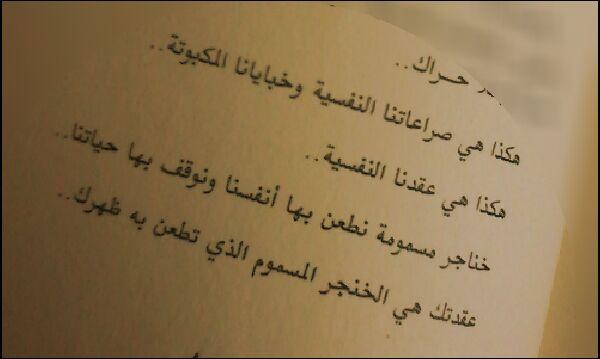 حراك..
هكذا هي صراعاتنا النفسية وخبايانا المكبوتة..
هكذا هي عقدنا النفسية..
خناجر مسمومة نطعن بها أنفسنا ونوقف بها حياتنا..
عقدتك هي الخنجر المسموم الذي تطعن به ظهرك..